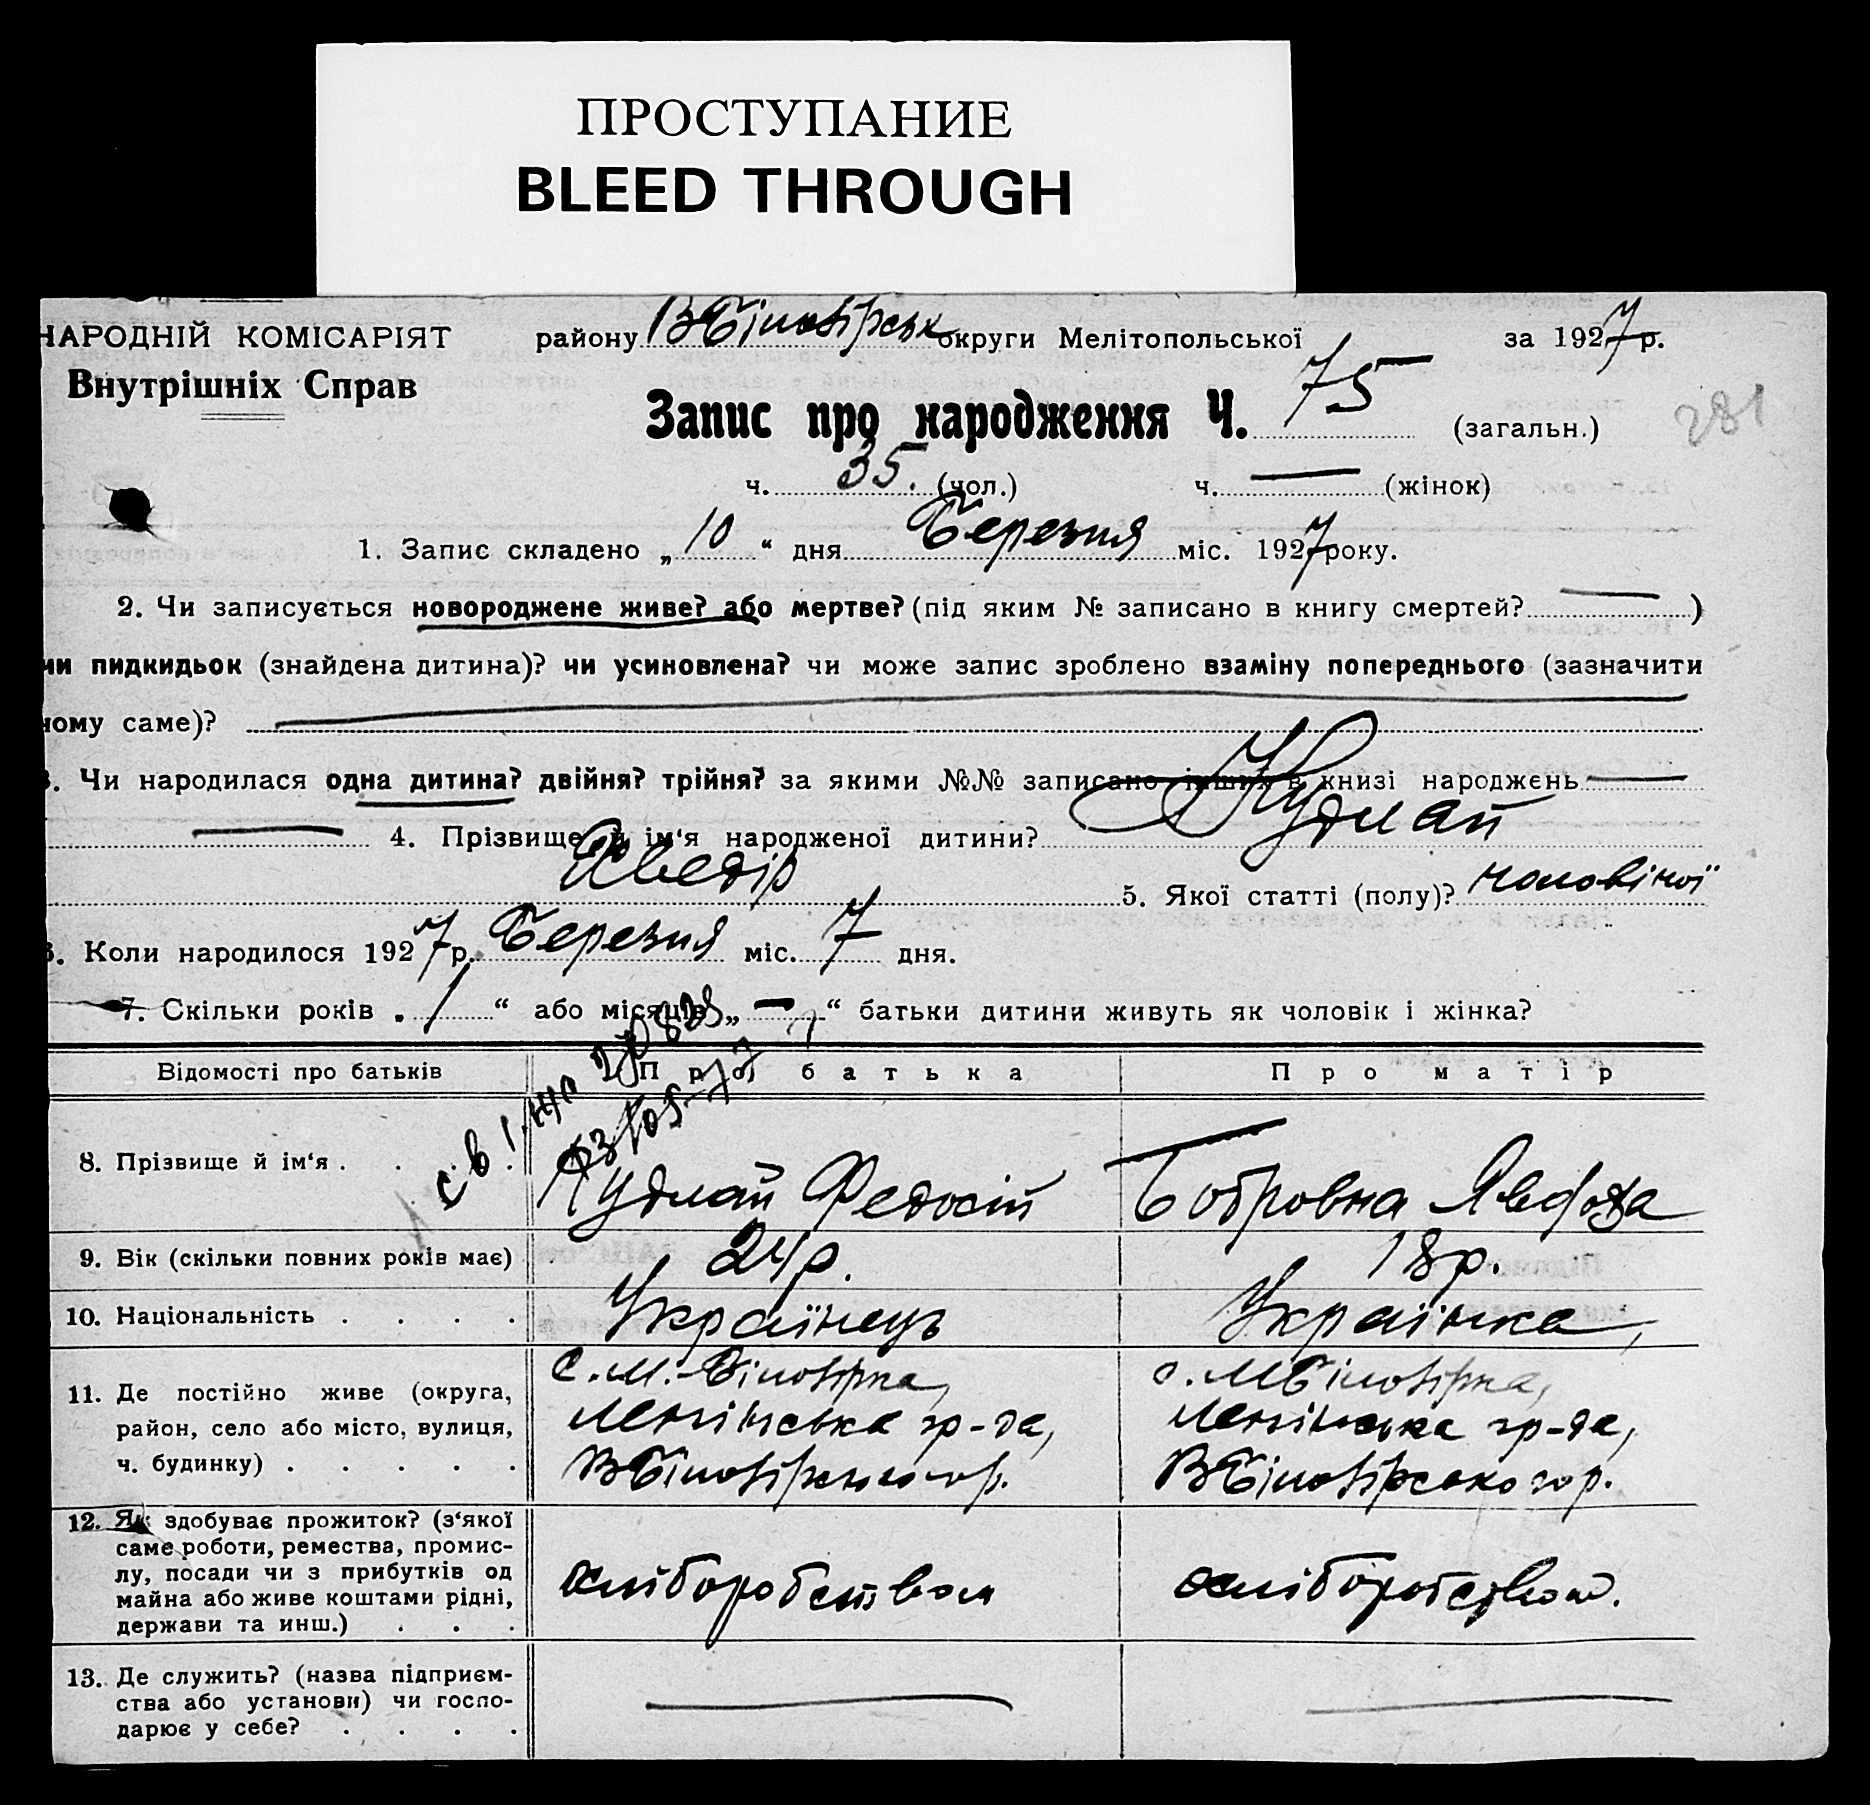 ПРОСТУПАНИЕ
BLEED THROUGH
НАРОДНІЙ КОМІСАРІЯТ
Внутрішніх Справ
району ВБілозірськ округи Мелітопольської за 1927 р.
281
Запис про народження Ч. 75 (загальн.)
ч. 35. (чол.) ч. — (жінок)
1. Запис складено „10“ дня Березня міс. 1927 року.
2. Чи записується новороджене живе? або мертве? (під яким № записано в книгу смертей? — )
чи пидкидьок (знайдена дитина)? чи усиновлена? чи може запис зроблено взаміну попереднього (зазначити
чому саме)? —
3. Чи народилася одна дитина? двійня? трійня? за якими №№ записано інших в книзі народжень —
— 4. Прізвище й ім‘я народженої дитини? Кудлай
5. Якої статті (полу)? чоловічої
6. Коли народилося 1927 р. Березня міс. 7 дня.
7. Скільки років „1“ або місяців „—“ батьки дитини живуть як чоловік і жінка?
Відомості про батьків Про батька Про матір
8. Прізвище й ім‘я . . . . Кудлай Федосій Бобровна Явдоха
9. Вік (скільки повних років має) 24р. 18р.
10. Національність . . . . Українець Українка,
11. Де постійно живе (округа,
район, село або місто, вулиця,
ч. будинку) . . . . .
с. М.-Білозірка,
Ленінська гр-да,
ВБілозірського р.
с. МБілозірка,
Ленінська гр-да,
ВБілозірського р.
12. Як здобуває прожиток? (з‘якої
саме роботи, ремества, промис-
лу, посади чи з прибутків од
майна або живе коштами рідні,
держави та инш.) . . .
хліборобством
хліборобством.
13. Де служить? (назва підприєм-
ства або установи) чи госпо-
дарює у себе? . . . .